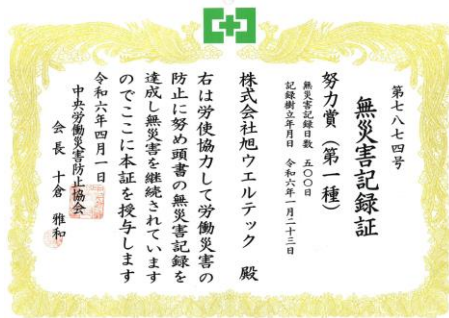 第七八七四号
無災害記録証
努力賞（第一種）
無災害記録日数 五〇〇日
記録樹立年月日 令和六年一月二十三日
株式会社旭ウエルテック 殿
右は労使協力して労働災害の
防止に努め頭書の無災害記録を
達成し無災害を継続されています
のでここに本証を授与します
令和六年四月一日
中央労働災害防止協会
会長 十倉 雅和